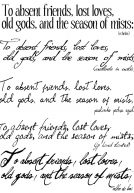 To absent friends, lost loves,
old gods, and the season of mists:
To absent friends, lost loves,
old gods, and the season of mists
To absent friends, lost loves,
old gods, and the season of mists,
To absent friends, lost loves,
old gods, and the season of mists
To absent friends, lost loves,
old gods, and the season of mists,